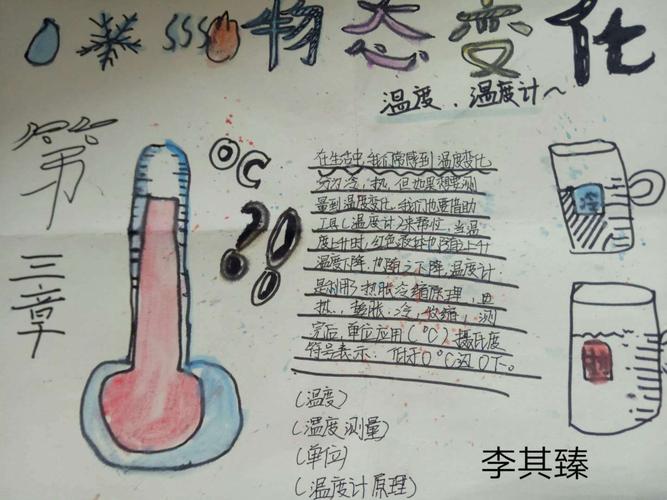 物态变化
温度、温度计~
第三章
℃
?!
在生活中,我们常感到温度变化
分为冷,热,但如果想要测
量到温度变化,我们也要借助
工具(温度计)来帮忙,当温
度上升时,红色液体也随之上升
温度下降,也随之下降,温度计
是利用了热胀冷缩原理,
热,膨胀,冷,收缩,测
完后,单位应用(℃)摄氏度
符号表示,低于0℃为0下。
冷
热
(温度)
(温度测量)
(单位)
(温度计原理)
李其臻